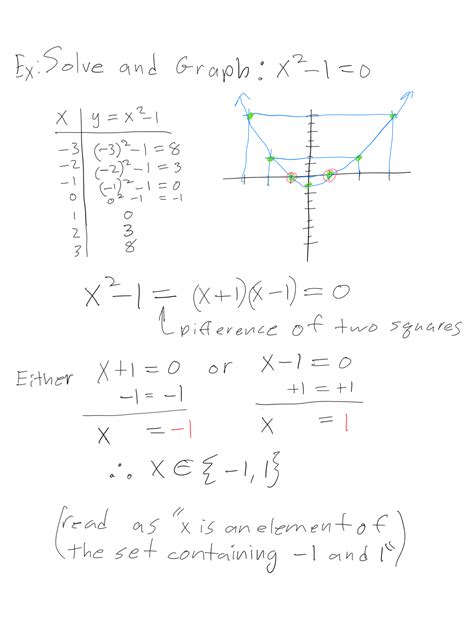 Ex: Solve and Graph: x²-1=0
x | y = x²-1
-3 | (-3)²-1 = 8
-2 | (-2)²-1 = 3
-1 | (-1)²-1 = 0
0 | 0²-1 = -1
1 | 0
2 | 3
3 | 8
x²-1 = (x+1)(x-1) = 0
Difference of two squares
Either x+1=0 or x-1=0
-1 = -1 +1 = +1
x = -1 x = 1
∴ x ∈ {-1,1}
(read as "x is an element of
the set containing -1 and 1")